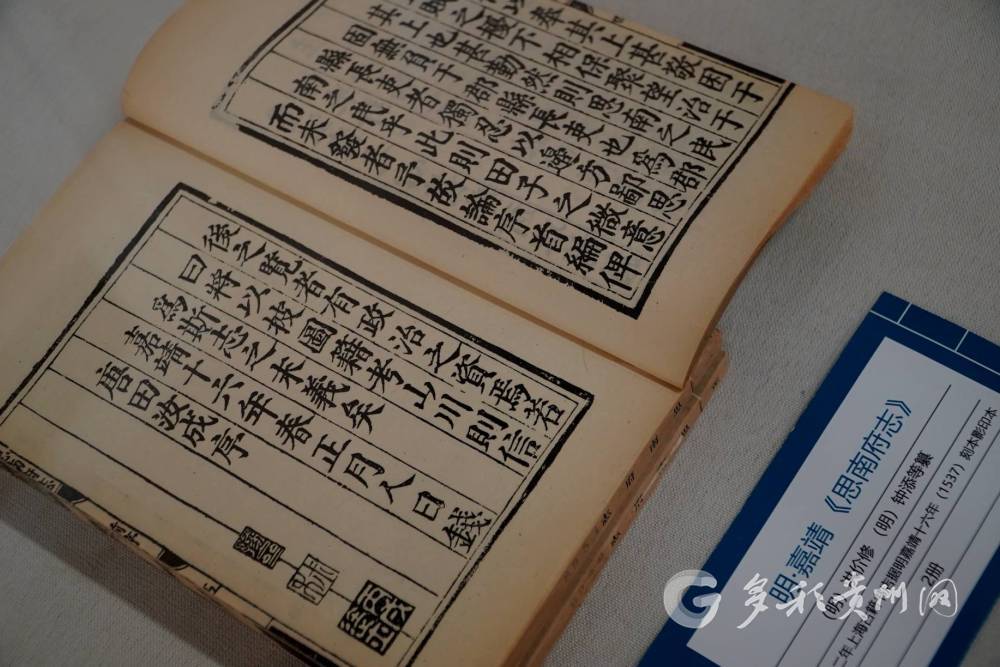 以奉其上甚敬困于
之擾不相保聚望治于
其上也甚勤然則思南之民
固無負于郡縣長吏也為郡
縣長吏者獨忍以邊方鄙思
南之民乎此則田子之微意
而未發者予故論序首編俾
後之覽者有政治之資焉若
曰將以披圖籍考山川則信
為斯志之末義矣
嘉靖十六年春正月人日錢
唐田汝成序
明·嘉靖 《思南府志》
（明）洪价修 （明）钟添等纂
年上海古籍 据明嘉靖十六年（1537）刻本影印本
2册
多彩贵州网